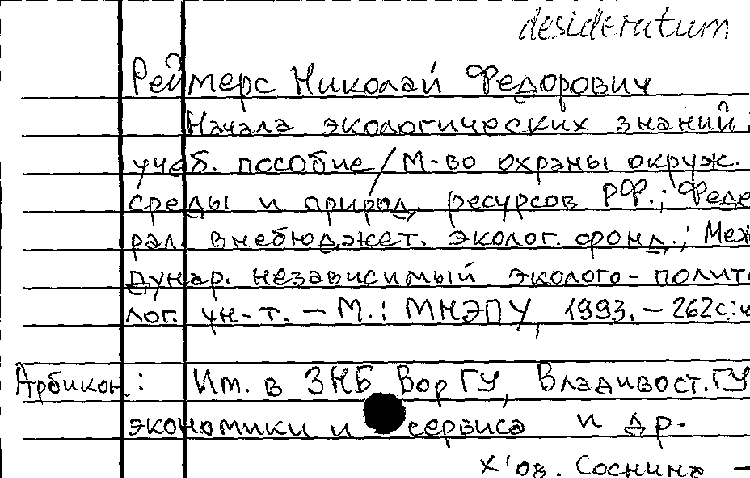 desideratum
Реймерс Николай Федорович
Начала экологических знаний:
учеб. пособие / М-во охраны окруж.
среды и природ. ресурсов РФ.; Феде
рал. внебюджет. эколог. фонд.; Меж
дунар. независимый эколого-полит
лог. ун-т. – М.: МНЭПУ, 1993. – 262с:
Арбикон: Им. в ЗНБ ВорГУ, Владивост. ГУ
экономики и сервиса и др.
X'08. Соснина –